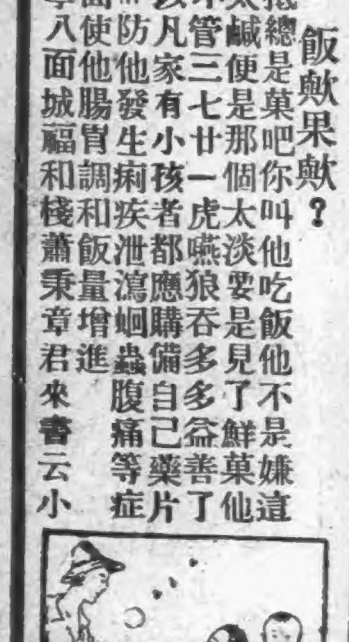 飯歟果歟？
總是菓吧你叫他吃飯他不是嫌這
太鹹便是那個太淡要是見了鮮菓他
管三七廿一虎嚥狼吞多多益善了
凡家有小孩者都應購備自己藥片
防他發生痢疾泄瀉蛔蟲腹痛等症
使他腸胃調和飯量增進
八面城福和棧蕭秉章君來書云小